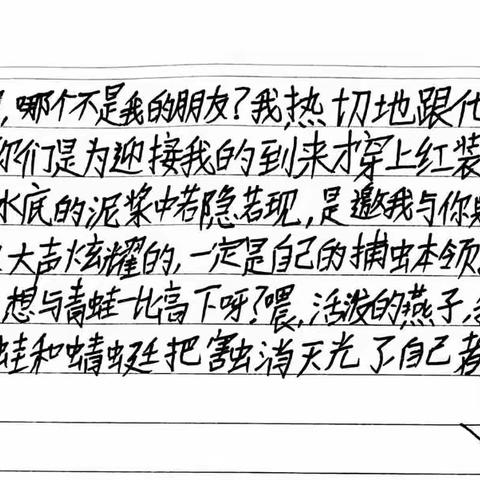 ,哪个不是我的朋友?我热切地跟
你们是为迎接我的到来才穿上红装
水底的泥浆中若隐若现,是邀我与你
大声炫耀的,一定是自己的捕虫本领
想与青蛙一比高下呀?喂,活泼的燕子,
蛙和蜻蜓把害虫消灭光了自己